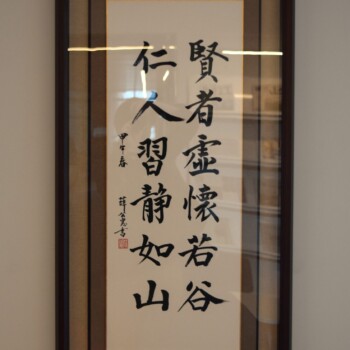 賢者虛懷若谷
仁人習靜如山
甲午春